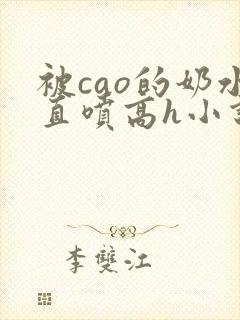 被cao的奶水
直喷高h小
李雙江